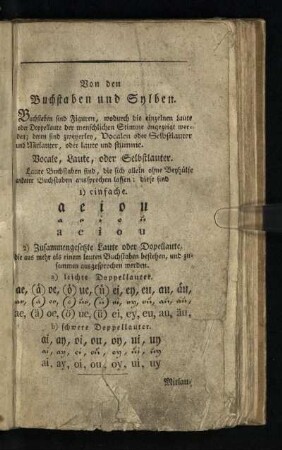 Von den
Buchstaben und Sylben.
Buchstaben sind Figuren, wodurch die einzelnen Laute
oder Doppellaute der menschlichen Stimme angezeigt wer-
den; deren sind zweyerley, Vocalen oder Selbstlauter
und Mitlauter, oder laute und stumme.
Vocale, Laute, oder Selbstlauter.
Laute Buchstaben sind, die sich allein ohne Beyhülfe
anderer Buchstaben aussprechen lassen: diese sind
1) einfache.
a e i o u
a e i o u
a e i o u
2) Zusammengesetzte Laute oder Dopellaute,
die aus mehr als einem lauten Buchstaben bestehen, und zu-
sammen ausgesprochen werden.
a) leichte Doppellauter.
ae, (ä) oe, (ö) ue, (ü) ei, ey, eu, au, äu,
ae, (ä) oe, (ö) ue, (ü) ei, ey, eu, au, äu,
ae, (ä) oe, (ö) ue, (ü) ei, ey, eu, au, äu,
b) schwere Doppellauter.
ai, ay, oi, ou, oy, ui, uy
ai, ay, oi, ou, oy, ui, uy
ai, ay, oi, ou, oy, ui, uy
Mitlau-